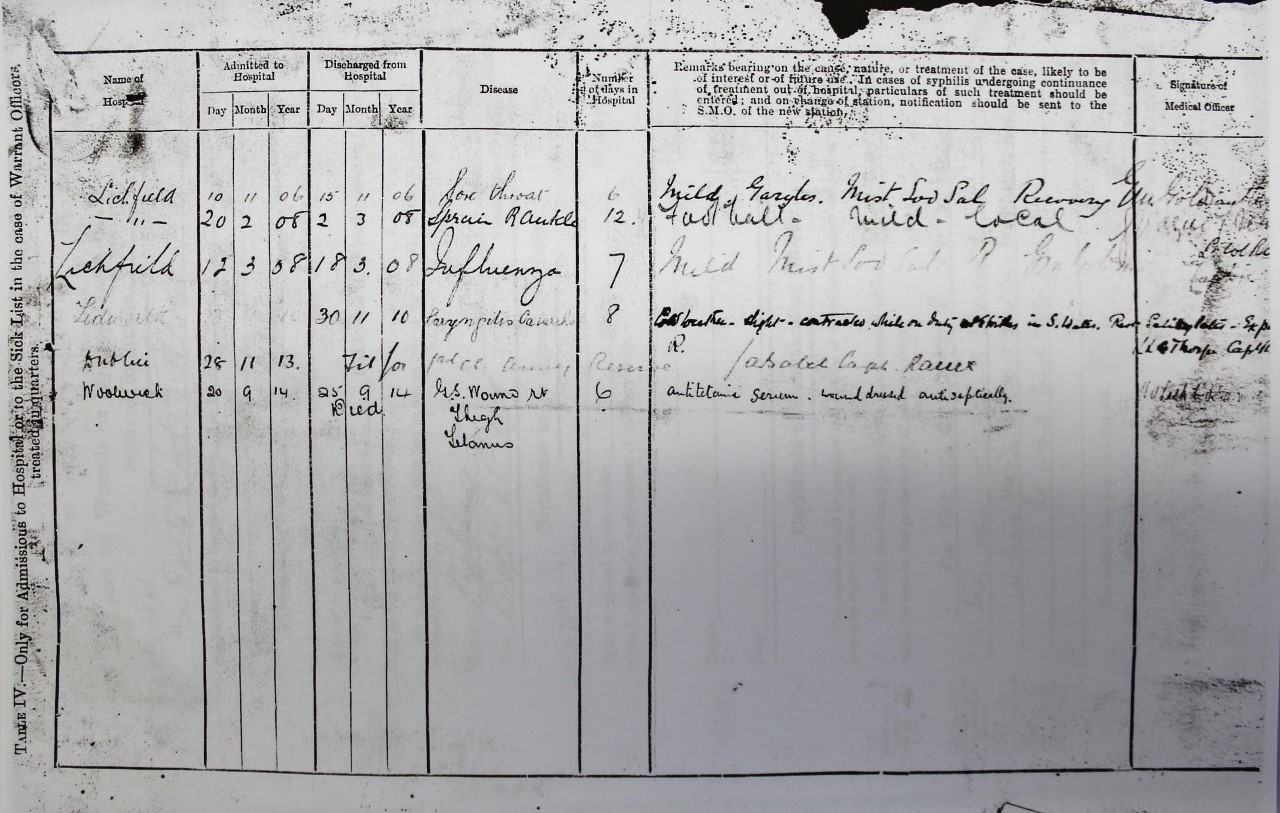 TABLE IV.—Only for Admissions to Hospital or to the Sick List in the case of Warrant Officers treated in quarters.
Name of Hospital
Admitted to Hospital
Discharged from Hospital
Disease
Number of days in Hospital
Remarks bearing on the cause, nature, or treatment of the case, likely to be
of interest or of future use. In cases of syphilis undergoing continuance
of treatment out of hospital, particulars of such treatment should be
entered; and on change of station, notification should be sent to the
S.M.O. of the new station.
Signature of Medical Officer
Day Month Year Day Month Year
Lichfield 10 11 06 15 11 06 Sore throat 6 Mild. Gargles. Mist Sod Sal Recovery
— " — 20 2 08 2 3 08 Sprain R Ankle 12. Football - Mild - local
Lichfield 12 3 08 18 3. 08 Influenza 7 Mild Mist Sod Sal R
30 11 10 8 slight - contracted while on duty at strikes in S. Wales.
R.
Dublin 28 11 13. Fit for Army Reserve Capt. RAMC
Woolwich 20 9 14. 25 9 14 G.S. Wound rt 6 antitetanic serum. wound dressed antiseptically.
Died Thigh
Tetanus